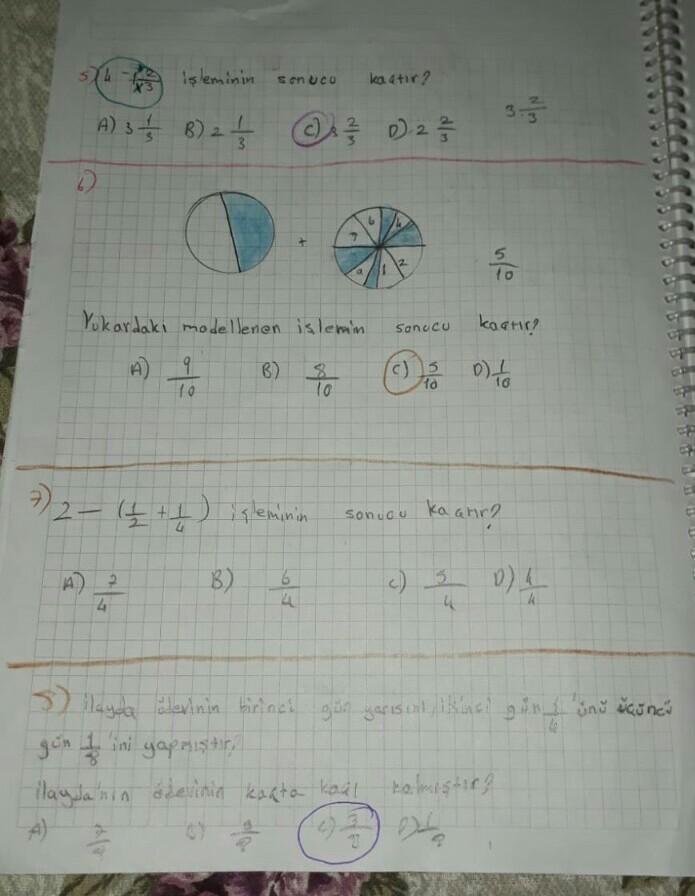 5) 4 - işleminin sonucu kaçtır?
3 2/3
A) 3 1/3 B) 2 1/3 C) 3 2/3 D) 2 2/3
6)
+
6 4
7 2
9 1
5/10
Yukardaki modellenen işlemin sonucu kaçtır?
A) 9/10 B) 8/10 C) 5/10 D) 1/10
7) 2 - (1/2 + 1/4) işleminin sonucu kaçtır?
A) 7/4 B) 6/4 C) 5/4 D) 4/4
8) ilayda ödevinin birinci gün yarısını, ikinci gün 'ünü üçüncü
gün 1/8 'ini yapmıştır.
ilayda'nın ödevinin kaçta kaçı kalmıştır?
A) B) C) 3/8 D)